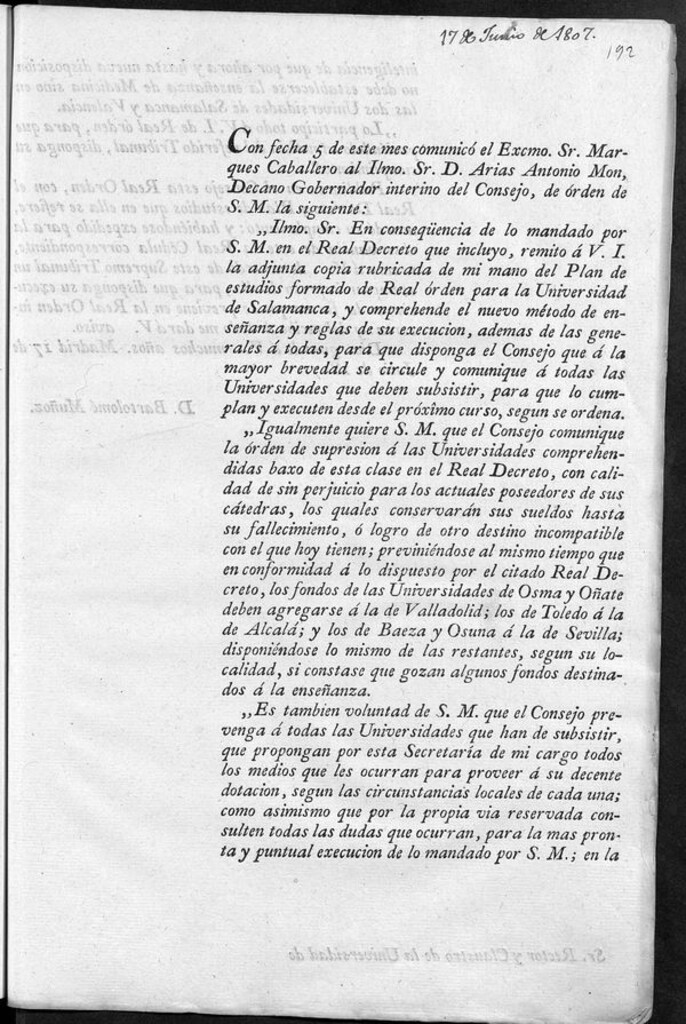 17 de Junio de 1807.
192
Con fecha 5 de este mes comunicó el Excmo. Sr. Mar-
ques Caballero al Ilmo. Sr. D. Arias Antonio Mon,
Decano Gobernador interino del Consejo, de órden de
S. M. la siguiente:
„Ilmo. Sr. En conseqüencia de lo mandado por
S. M. en el Real Decreto que incluyo, remito á V. I.
la adjunta copia rubricada de mi mano del Plan de
estudios formado de Real órden para la Universidad
de Salamanca, y comprehende el nuevo método de en-
señanza y reglas de su execucion, ademas de las gene-
rales á todas, para que disponga el Consejo que á la
mayor brevedad se circule y comunique á todas las
Universidades que deben subsistir, para que lo cum-
plan y executen desde el próxîmo curso, segun se ordena.
„Igualmente quiere S. M. que el Consejo comunique
la órden de supresion á las Universidades comprehen-
didas baxo de esta clase en el Real Decreto, con cali-
dad de sin perjuicio para los actuales poseedores de sus
cátedras, los quales conservarán sus sueldos hasta
su fallecimiento, ó logro de otro destino incompatible
con el que hoy tienen; previniéndose al mismo tiempo que
en conformidad á lo dispuesto por el citado Real De-
creto, los fondos de las Universidades de Osma y Oñate
deben agregarse á la de Valladolid; los de Toledo á la
de Alcalá; y los de Baeza y Osuna á la de Sevilla;
disponiéndose lo mismo de las restantes, segun su lo-
calidad, si constase que gozan algunos fondos destina-
dos á la enseñanza.
„Es tambien voluntad de S. M. que el Consejo pre-
venga á todas las Universidades que han de subsistir,
que propongan por esta Secretaría de mi cargo todos
los medios que les ocurran para proveer á su decente
dotacion, segun las circunstancias locales de cada una;
como asimismo que por la propia via reservada con-
sulten todas las dudas que ocurran, para la mas pron-
ta y puntual execucion de lo mandado por S. M.; en la